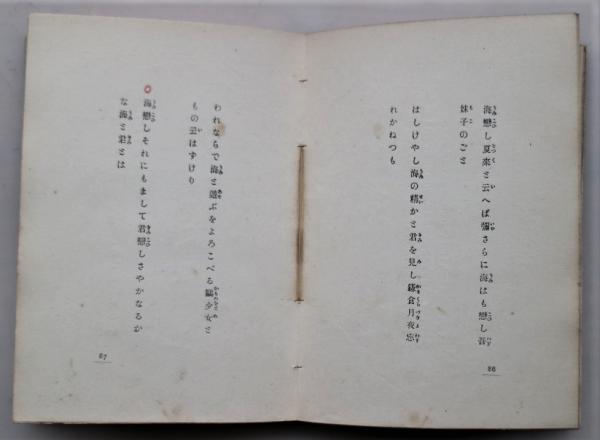 海戀し夏來と云へば彌さらに海はも戀し吾
妹子のごと
はしけやし海の精かと君を見し鎌倉月夜忘
れかねつも
86
われならで海と遊ぶをよろこべる鷗少女と
もの云はずけり
海戀しそれにもまして君戀しさやかなるか
な海と君とは
87